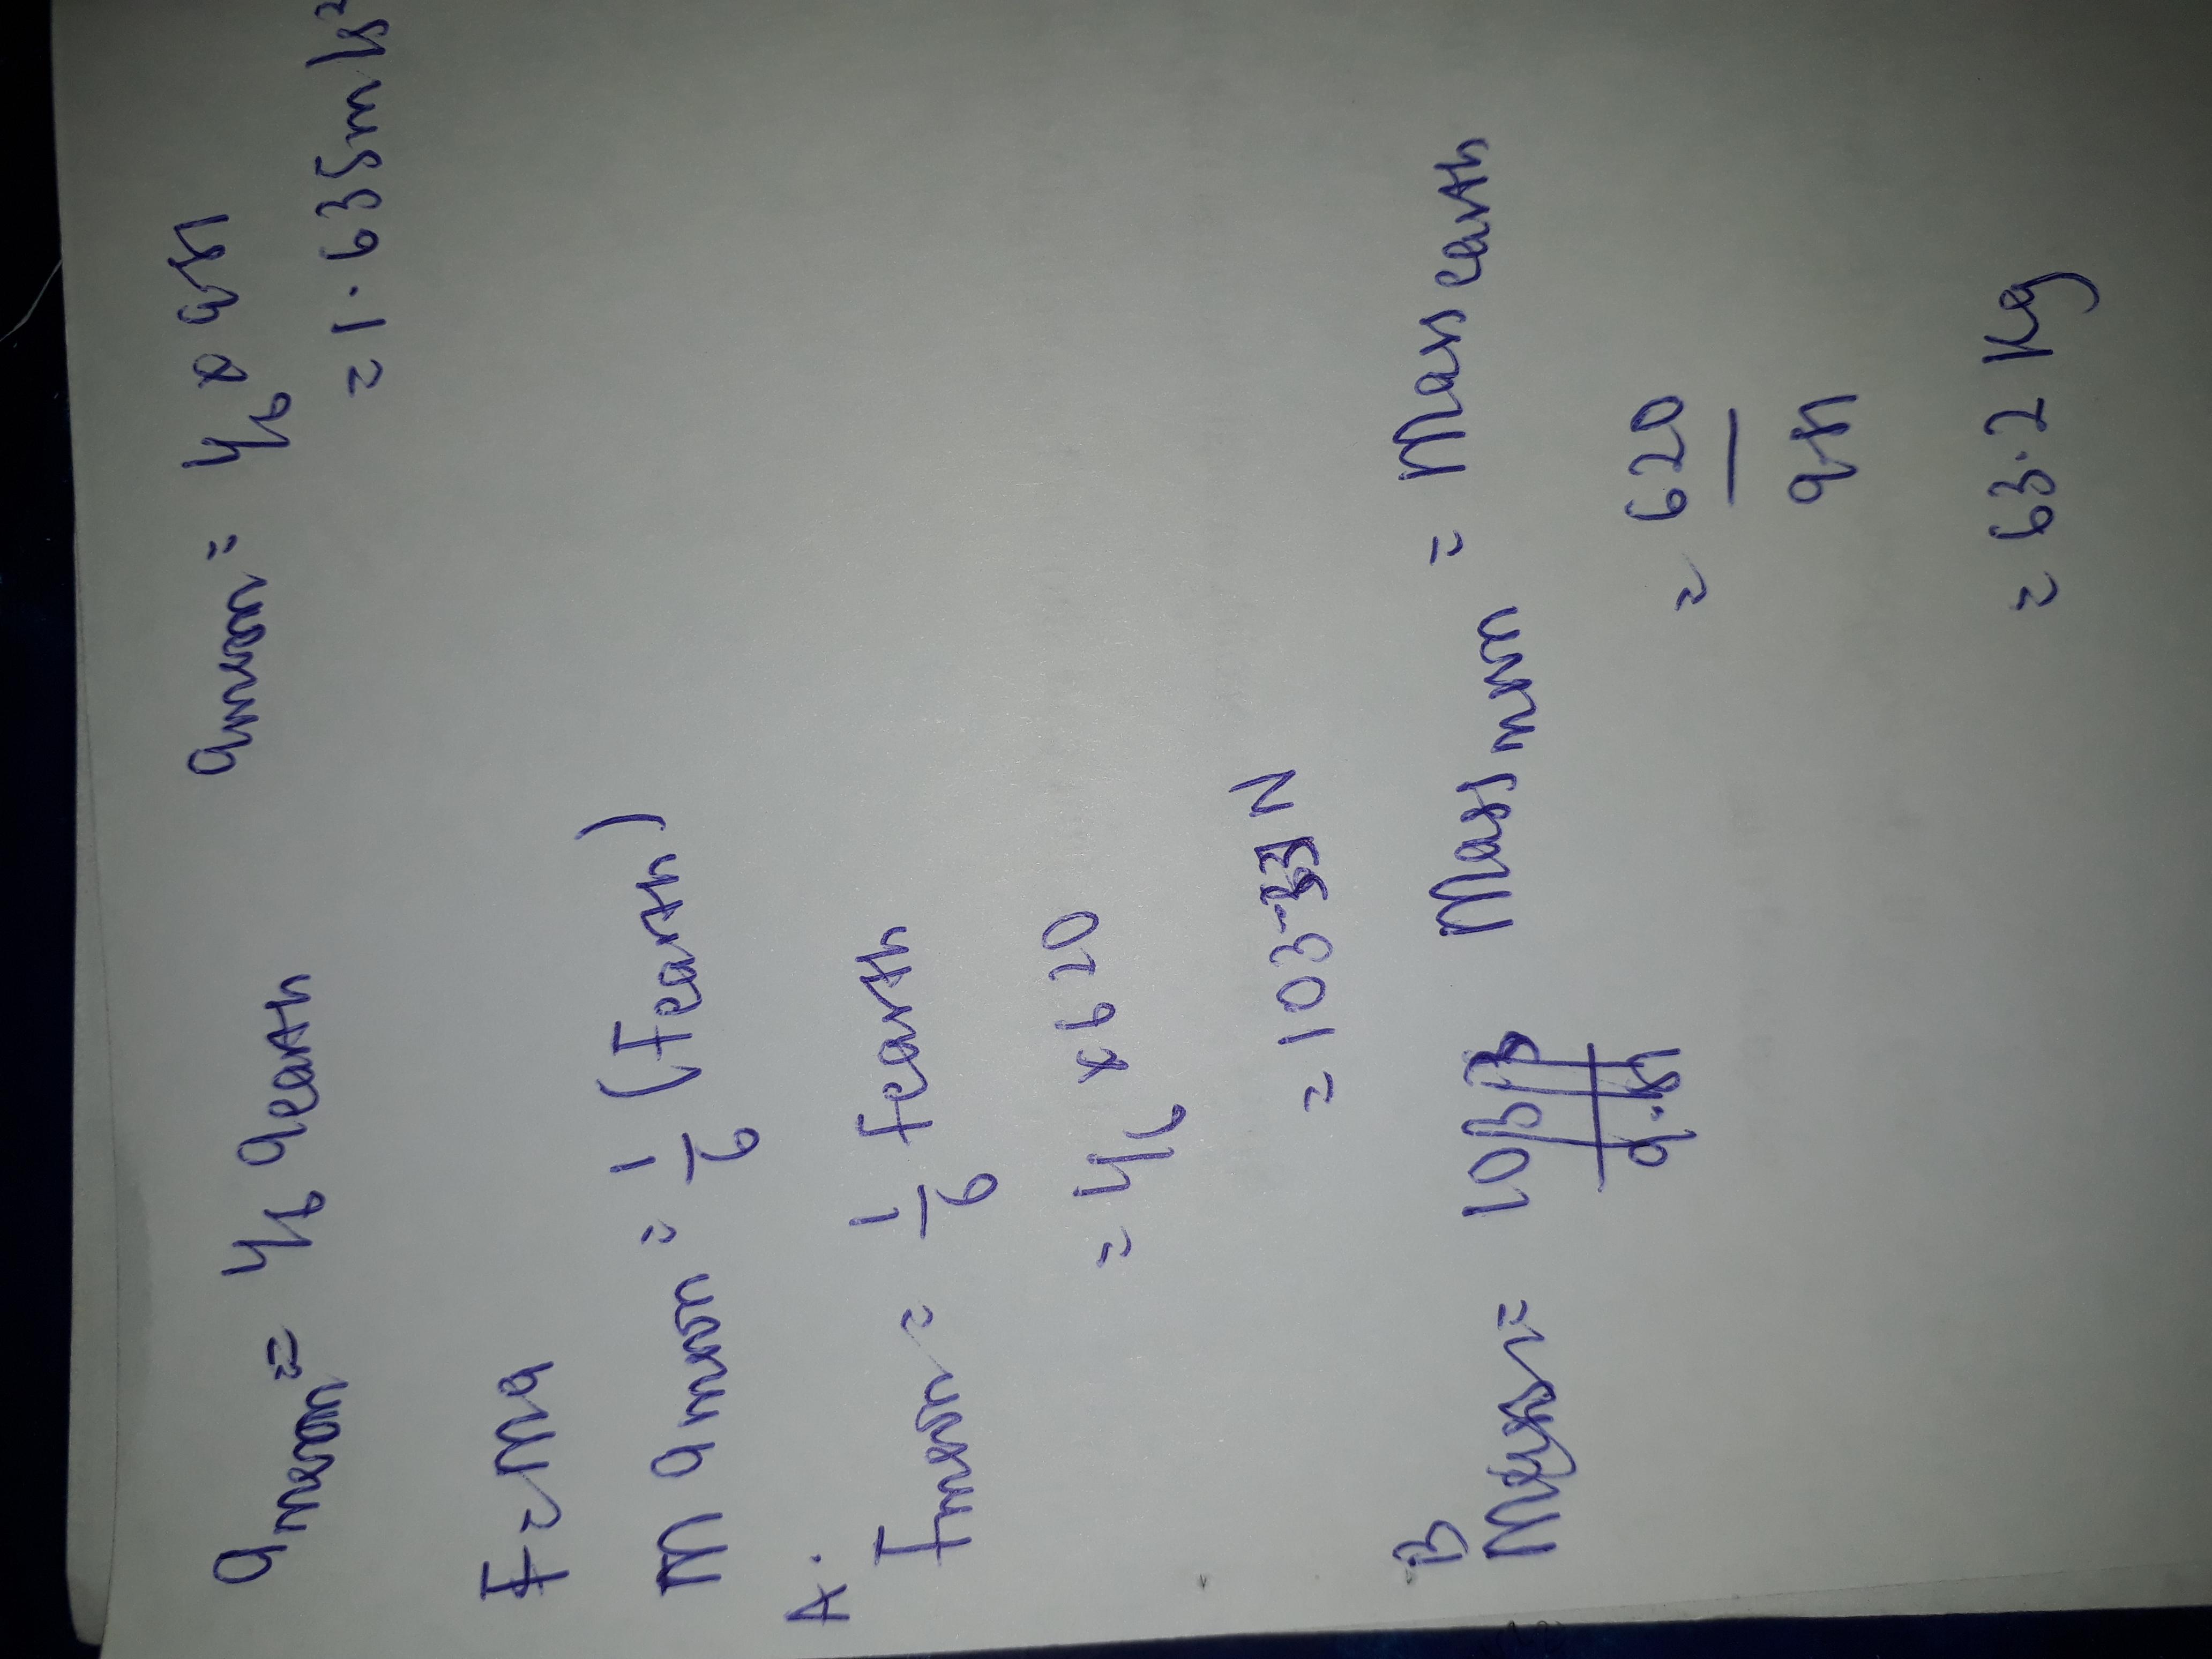 amoon = 1/6 aearth amoon = 1/6 x 9.81
= 1.635m/s²
F = ma
m amoon = 1/6 (Fearth)
A. Fmoon = 1/6 Fearth
= 1/6 x 620
= 103.33 N
B Mass moon = Mass earth
= 620/9.81
= 63.2 Kg